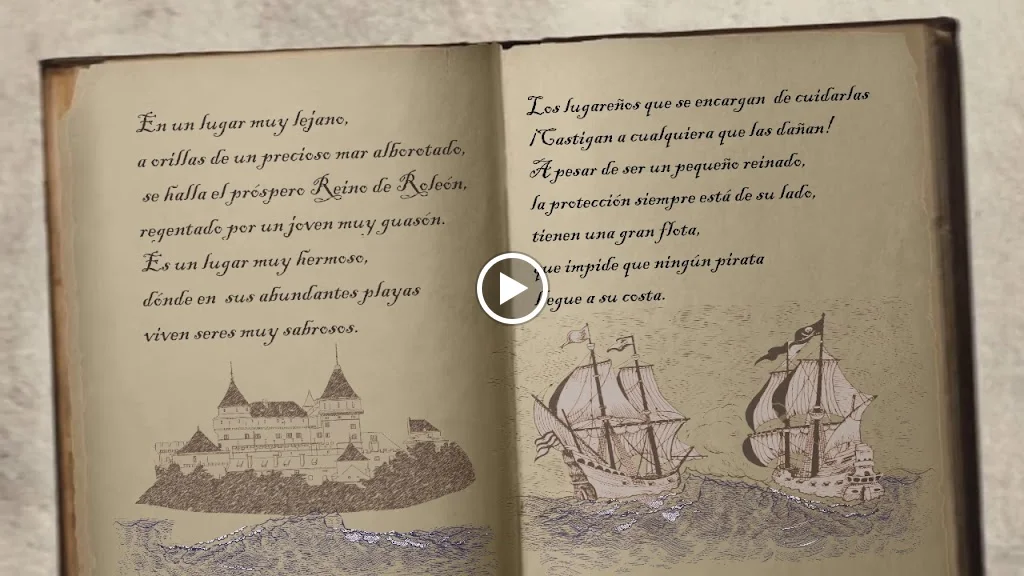 En un lugar muy lejano,
a orillas de un precioso mar alborotado,
se halla el próspero Reino de Roleón,
regentado por un joven muy guasón.
Es un lugar muy hermoso,
dónde en sus abundantes playas
viven seres muy sabrosos.
Los lugareños que se encargan de cuidarlas
¡Castigan a cualquiera que las dañan!
A pesar de ser un pequeño reinado,
la protección siempre está de su lado,
tienen una gran flota,
que impide que ningún pirata
llegue a su costa.